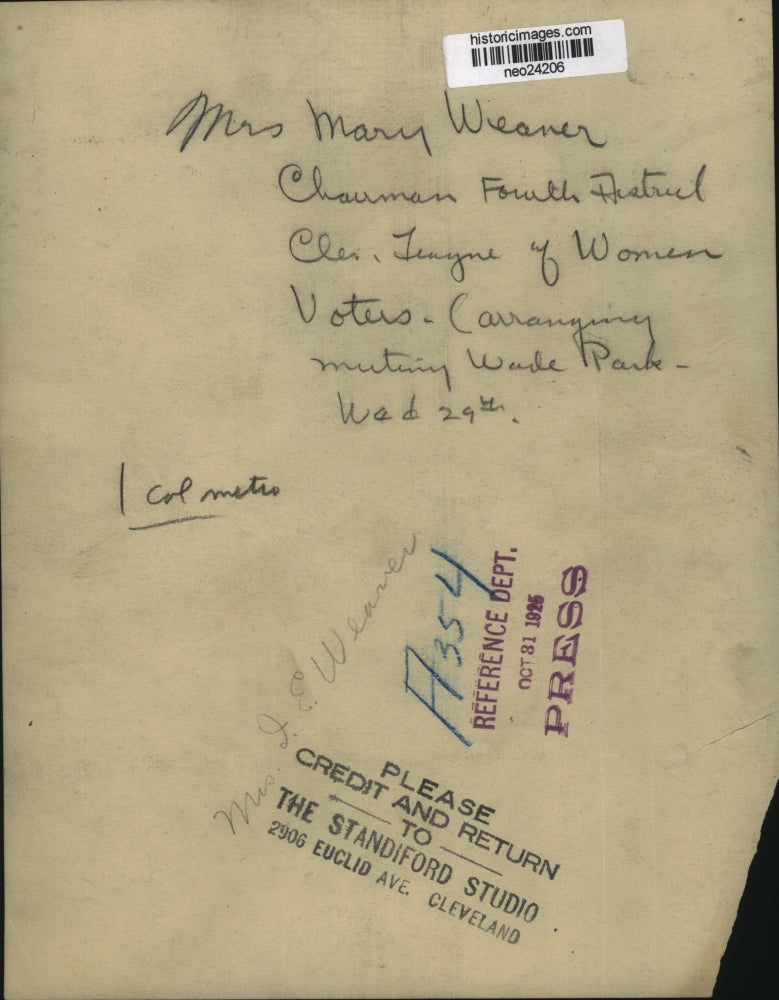 historicimages.com
neo24206
Mrs Mary Weaver
Chairman Fourth District
Clev. League of Women
Voters - (arranging
meeting Wade Park -
Wed 29th.
1 col metro
Mrs. I. E. Weaver
A354
REFERENCE DEPT.
OCT 31 1925
PRESS
PLEASE
CREDIT AND RETURN
TO
THE STANDIFORD STUDIO
2906 EUCLID AVE. CLEVELAND